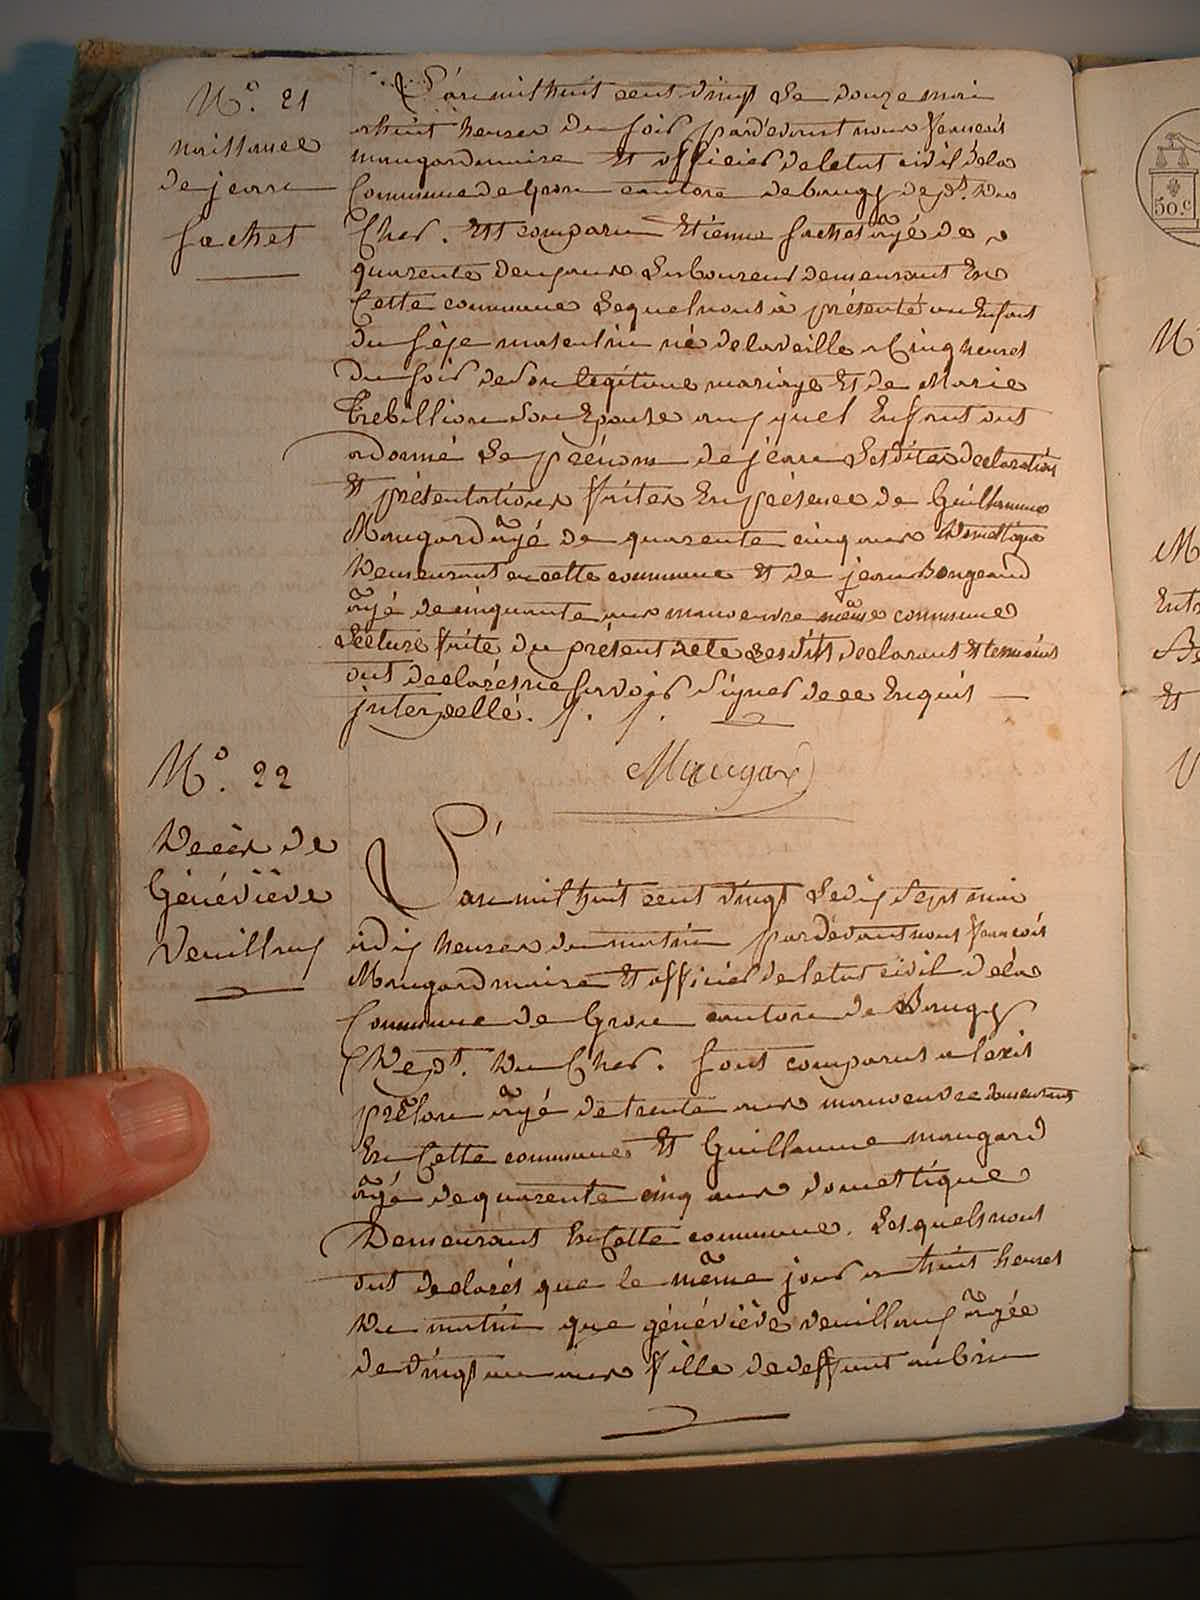 N.° 21
naissance
de jean
fachet
L'an mil huit cent vingt Le douze mai
a huit heures du soir pardevant nous francois
maugard maire Et officier de letat civil de la
Commune de Gron canton de baugy dep.t Du
Cher. Est comparu Etienne fachet âgé de
quarente deux ans Laboureur demeurant En
Cette commune Lequel nous à présenté un Enfant
du sèxe masculin né de la veille a Cinq heures
Du soir de Son legitime mariage Et de Marie
Trebillion Son Epouse auquel Enfant ont
adonné Le prénom de jean Lesdites declaration
Et présentations faites En présence de Guillaume
Maugard âgé de quarente cinq ans Domestique
Demeurant en cette commune Et de jean Bongeard
âgé de cinquante ans manoeuvre même commune
Lecture faite du présent acte Lesdits declarant Et temoins
ont declarés ne savoir Signer de ce Enquis
interpellé. /. /.
Maugard
N.° 22
Décès de
Généviève
Veuillaux
L'an mil huit cent vingt Le dix Sept mai
a dix heures du matin pardevant nous francois
Maugard maire Et officier de letat civil de la
Commune de Gron canton de Baugy
Dep.t Du Cher. Sont comparus alexis
prêlon âgé de trente ans manoeuvre demeurant
En Cette commune Et Guillaume maugard
âgé de quarente cinq ans domestique
Demeurant En Cette commune. Lesquels nous
ont declarés que le même jour a huit heures
Du matin que généviève veuillaux âgée
de vingt un ans fille de deffunt aubin
50.c
N
M
Entr
Be
Et